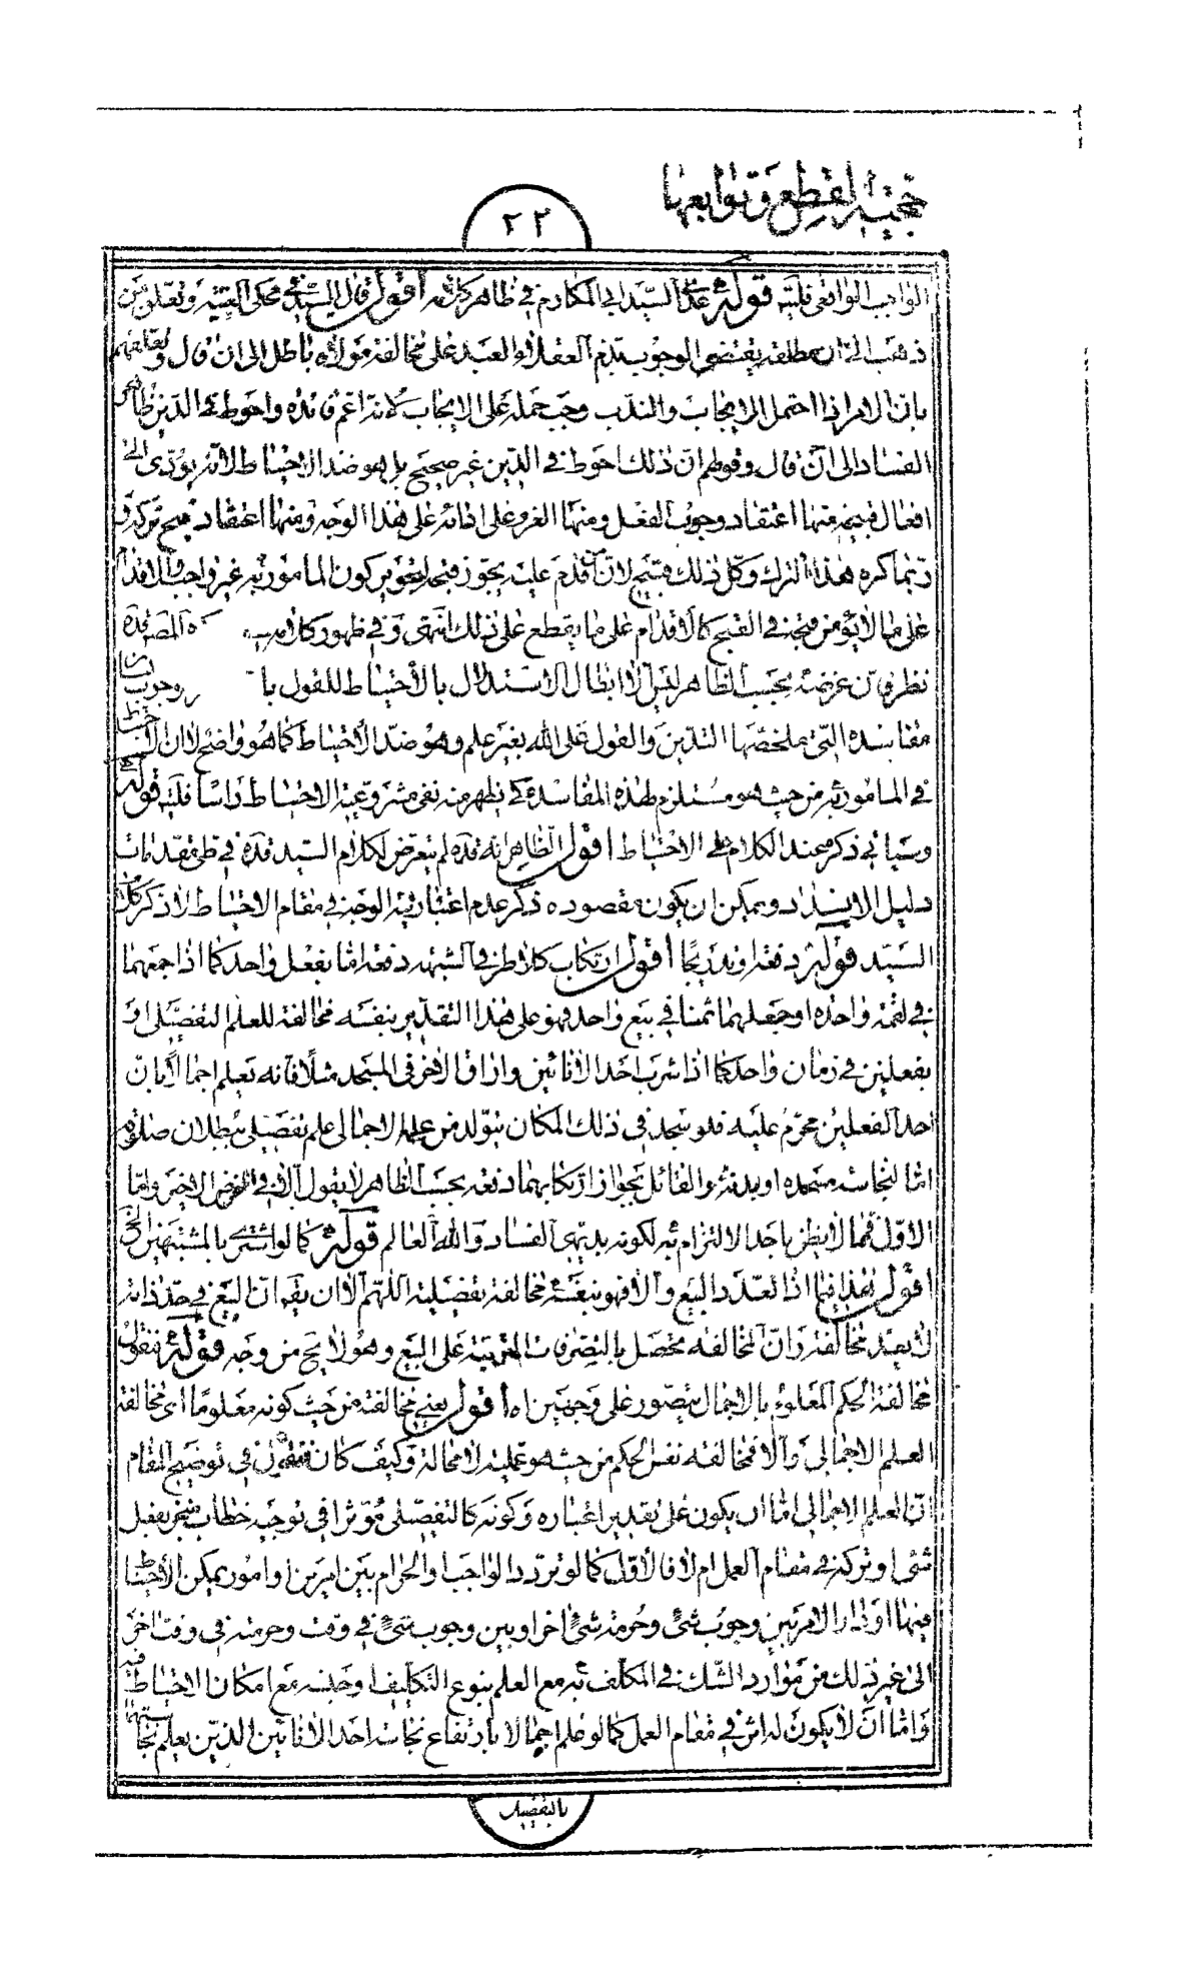 حجية القطع وتوابعها
٢٢
الواجب الواقعى فليتأمل قوله على السيد ابى المكارم فى ظاهر كلامه اقول قال السيد فى محكى الغنية وتعلق من
ذهب الى ان مطلقه يقتضى الوجوب بذم العقلاء العبد على مخالفة مولاه باطل الى ان قال وتعلقهم
بان الامر اذا احتمل الايجاب والندب وجب حمله على الايجاب لانه اعم فائدة واحوط فى الدين ظاهر
الفساد الى ان قال وقولهم ان ذلك احوط فى الدين غير صحيح بل هو ضد الاحتياط لانه يؤدى الى
افعال قبيحة منها اعتقاد وجوب الفعل ومنها العزم على ادائه على هذا الوجه ومنها اعتقاد قبح تركه و
ربما كره هذا الترك وكل ذلك قبيح لان من اقدم عليه يجوز قبحه لتجويز كون المأمور به غير واجب والاقدام
على ما لا يؤمن قبحه فى القبح كالاقدام على ما يقطع على ذلك انتهى وفى ظهور كلامه المصنف قده
نظر فان غرضه بحسب الظاهر ليس الا ابطال الاستدلال بالاحتياط للقول بالوجوب
مفاسده التى ملخصها التدين والقول على الله بغير علم وهو ضد الاحتياط كما هو واضح لا ان الاحتياط
فى المأمور به من حيث هو مستلزم لهذه المفاسد كى يظهر منه نفى مشروعية الاحتياط رأسا فليتأمل قوله
وسيأتى ذكره عند الكلام على الاحتياط اقول الظاهر انه قده لم يتعرض لكلام السيد قده فى طى مقدمات
دليل الانسداد ويمكن ان يكون مقصوده ذكر عدم اعتبار نية الوجه فى مقام الاحتياط لا ذكر كلام
السيد قوله دفعة او تدريجا اقول ارتكاب كلا طرفى الشبهة دفعة اما بفعل واحد كما اذا جمعهما
فى لقمة واحدة او جعلهما ثمنا فى بيع واحد فهو على هذا التقدير بنفسه مخالفة للعلم التفصيلى او
بفعلين فى زمان واحد كما اذا شرب احد الانائين واراق الاخر فى المسجد مثلا فانه يعلم اجمالا بان
احد الفعلين محرم عليه فلو سجد فى ذلك المكان يتولد من علمه الاجمالى علم تفصيلى ببطلان صلوته
اما لنجاسة مسجده او بدنه والقائل بجواز ارتكابهما دفعة بحسب الظاهر لا يقول الا فى الفرض الاخير واما
الاول فما لا يظن باحد الالتزام به لكونه بديهى الفساد والله العالم قوله كما لو اشترى بالمشتبهين الخ
اقول هذا فيما اذا تعدد البيع والا فهو بنفسه مخالفة تفصيلية اللهم الا ان يقه ان البيع فى حد ذاته
لا يعد مخالفة وان المخالفة تحصل بالتصرفات المترتبة على البيع وهو لا يخ من وجه قوله فنقول
مخالفة الحكم المعلوم بالاجمال يتصور على وجهين اه اقول يعنى مخالفته من حيث كونه معلوما اى مخالفة
العلم الاجمالى والا فمخالفة نفس الحكم من حيث هو عملية لا محالة وكيف كان فنقول فى توضيح المقام
ان العلم الاجمالى اما ان يكون على تقدير اعتباره وكونه كالتفصيلى مؤثرا فى توجيه خطاب منجز بفعل
شئ او تركه فى مقام العمل ام لا فالاول كما لو تردد الواجب والحرام بين امرين او امور يمكن الاحتياط
فيها او دار الامر بين وجوب شئ وحرمة شئ اخر او بين وجوب شئ فى وقت وحرمته فى وقت اخر
الى غير ذلك من موارد الشك فى المكلف به مع العلم بنوع التكليف او جنسه مع امكان الاحتياط فيه
واما ان لا يكون له اثر فى مقام العمل كما لو علم اجمالا بارتفاع نجاسة احد الانائين الذين يعلم نجاستهما
بالتفصيل